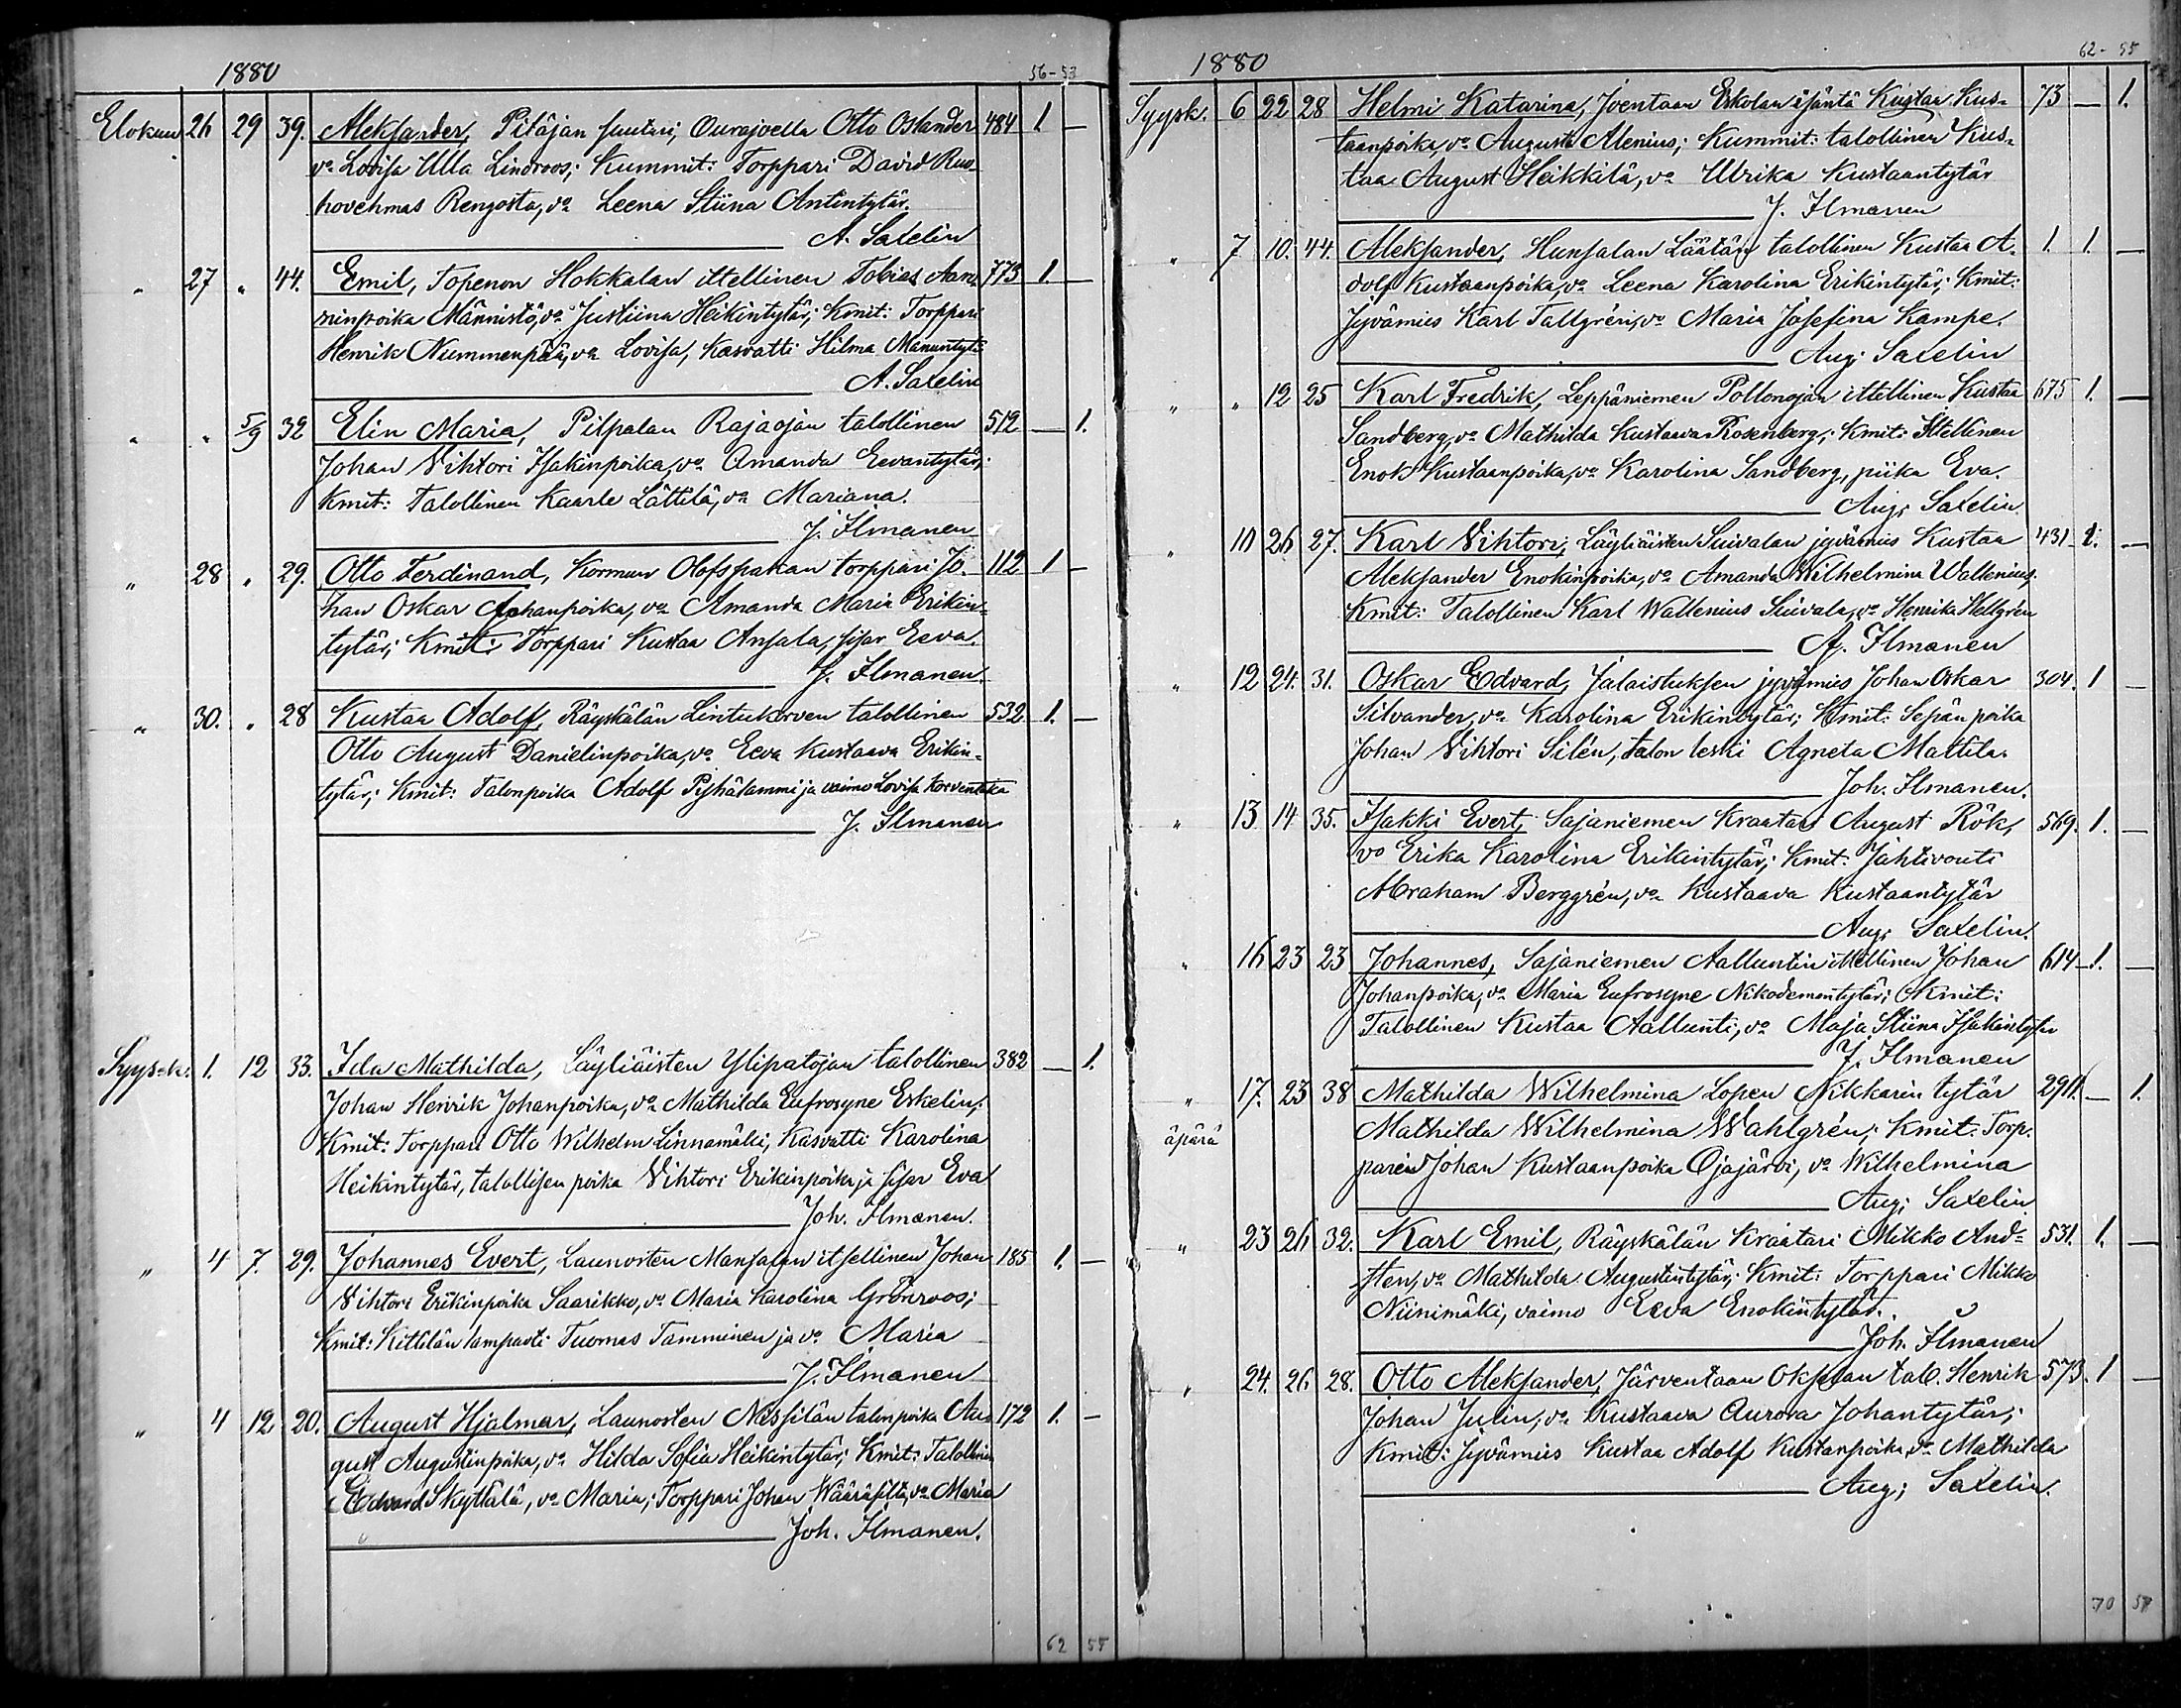 1880
56-53
Elokuu 26 29 39. Aleksander, Pitäjän suutari, Ourajoella Otto Oslander 484 1. —
vo Lovisa Ulla Lindroos; Kummit: Torppari David Rus-
hovehmas Rengosta, vo Leena Stiina Antintytär.
A. Saxelin
" 27 " 44. Emil, Topenon Hokkalan ittellinen Tobias 773 1. —
Männistö, vo Justiina Heikintytär; Kmit: Torppari
Henrik Nummenpää, vo Lovisa, Kasvatti Hilma
A. Saxelin
" " 5/9 32 Elin Maria, Pilpalan Rajaojan talollinen 512 — 1.
Johan Vihtori Isakinpoika, vo Amanda Eevantytär;
Kmit: Talollinen Kaarle Lättilä, vo Mariana.
J. Ilmanen
" 28 " 29. Otto Ferdinand, Kormun Olofspakan torppari Jo- 112 1 —
han Oskar Johanpoika, vo Amanda Maria Erikin-
tytär; Kmit: Torppari Kustaa Ansala, sisar Eeva.
J. Ilmanen.
" 30. " 28 Kustaa Adolf, Räyskälän Lintukorven talollinen 532 1. —
Otto August Danielinpoika, vo Eeva Kustaava Erikin-
tytär; Kmit: Talonpoika Adolf Pyhälammi ja vaimo Lovisa
J. Ilmanen
Syysk. 1. 12 33. Ida Mathilda, Läyliäisten Ylipatojan talollinen 382 — 1.
Johan Henrik Johanpoika, vo Mathilda Eufrosyne Eskelin;
Kmit: Torppari Otto Wilhelm Linnamäki, Kasvatti Karolina
Heikintytär, talollisen poika Vihtori Erikinpoika ja sisar Eva
Joh. Ilmanen.
" 4 7. 29. Johannes Evert, Launosten Mansalan itsellinen Johan 185 1. —
Vihtori Erikinpoika Saarikko, vo Maria Karolina Grönroos;
Kmit: Kittilän lampuoti Tuomas Tamminen ja vo Maria
J. Ilmanen
" 4 12 20. August Hjalmar, Launosten Nassilan talonpoika Au- 172 1. —
gust Augustinpoika, vo Hilda Sofia Heikintytär; Kmit: Talollinen
Edvard Skyttälä, vo Maria; Torppari Johan vo Maria
Joh. Ilmanen.
62 55
1880
62-55
Syysk. 6 22 28 Helmi Katarina, Joentaan Eskolan isäntä Kustaa Kus- 73 — 1.
taanpoika, vo Augusta Alenius; Kummit: talollinen Kus-
taa August Heikkilä, vo Ulrika Kustaantytär
J. Ilmanen
" 7 10. 44. Aleksander, Hunsalan Läätän talollinen Kustaa A- 1. 1. —
dolf Kustaanpoika, vo Leena Karolina Erikintytär; Kmit:
Jyvämies Karl Tallgrén, vo Maria Josefina Kampe.
Aug. Saxelin
" " 12 25 Karl Fredrik, Leppäniemen Pollonojan ittellinen Kustaa 675 1. —
Sandberg, vo Mathilda Kustaava Rosenberg; Kmit: Ittellinen
Enok Kustaanpoika, vo Karolina Sandberg, piika Eva.
Aug. Saxelin.
" 10 26 27. Karl Vihtori, Läyliäisten Suivalan jyvämies Kustaa 431 1. —
Aleksander Enokinpoika, vo Amanda Wilhelmina Wallenius;
Kmit: Talollinen Karl Wallenius Suivala, vo Henrika Hellgren
J. Ilmanen
" 12 24. 31. Oskar Edvard, Jalaistuksen jyvämies Johan Oskar 304. 1 —
Silvander, vo Karolina Erikintytär; Kmit: Sepän poika
Johan Vihtori Silén, talon leski Agneta Mattila.
Joh. Ilmanen.
" 13 14 35. Isakki Evert, Sajaniemen Kraatari August Rök, 569. 1. —
vo Erika Karolina Erikintytär; Kmit: Jahtivouti
Abraham Berggrén, vo Kustaava Kustaantytär
Aug. Saxelin.
" 16 23 23 Johannes, Sajaniemen Aalluntin ittellinen Johan 614 1. —
Johanpoika, vo Maria Eufrosyne Nikodemontytär; Kmit:
Talollinen Kustaa Aallunti, vo Maja Stiina Isakintytär
J. Ilmanen
" 17. 23 38 Mathilda Wilhelmina Lopen Nikkarin tytär 290. — 1.
äpärä Mathilda Wilhelmina Wahlgrén; Kmit: Torp-
parin Johan Kustaanpoika Ojajärvi, vo Wilhelmina
Aug. Saxelin
" 23 26 32. Karl Emil, Räyskälän Kraatari Mikko And- 531. 1. —
sten, vo Mathilda Augustintytär; Kmit: Torppari Mikko
Niinimäki, vaimo Eeva Enokintytär.
Joh. Ilmanen
" 24. 26 28. Otto Aleksander, Järventaan Okssan tal. Henrik 573. 1 —
Johan Julin, vo Kustaava Aurora Johantytär;
Kmit: Jyvämies Kustaa Adolf Kustaanpoika, vo Mathilda
Aug. Saxelin.
70 57